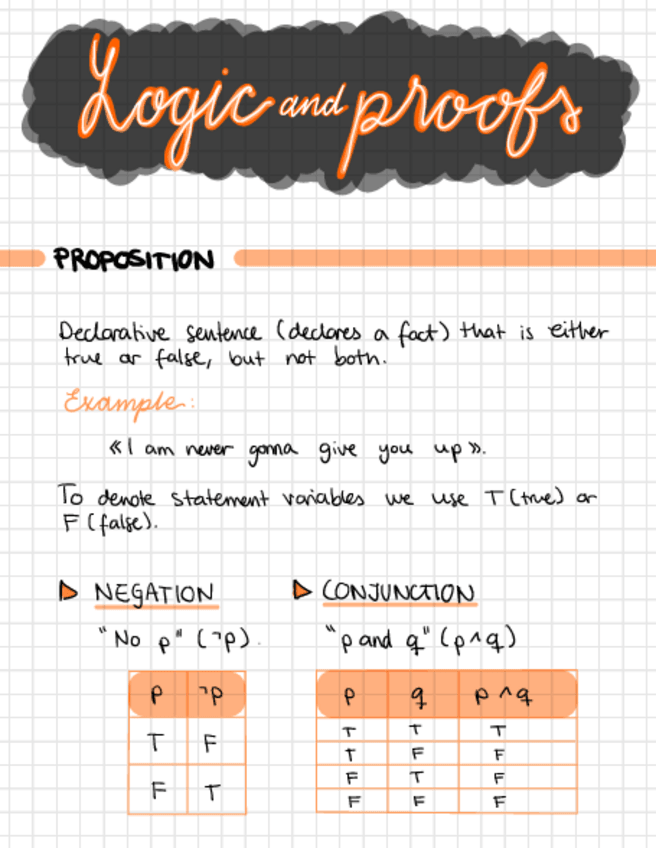 Logic and proofs
PROPOSITION
Declarative sentence (declares a fact) that is either
true or false, but not both.
Example:
«I am never gonna give you up».
To denote statement variables we use T (true) or
F (false).
NEGATION
"No p" (¬p).
p ¬p
T F
F T
CONJUNCTION
"p and q" (p ^ q)
p q p ^ q
T T T
T F F
F T F
F F F